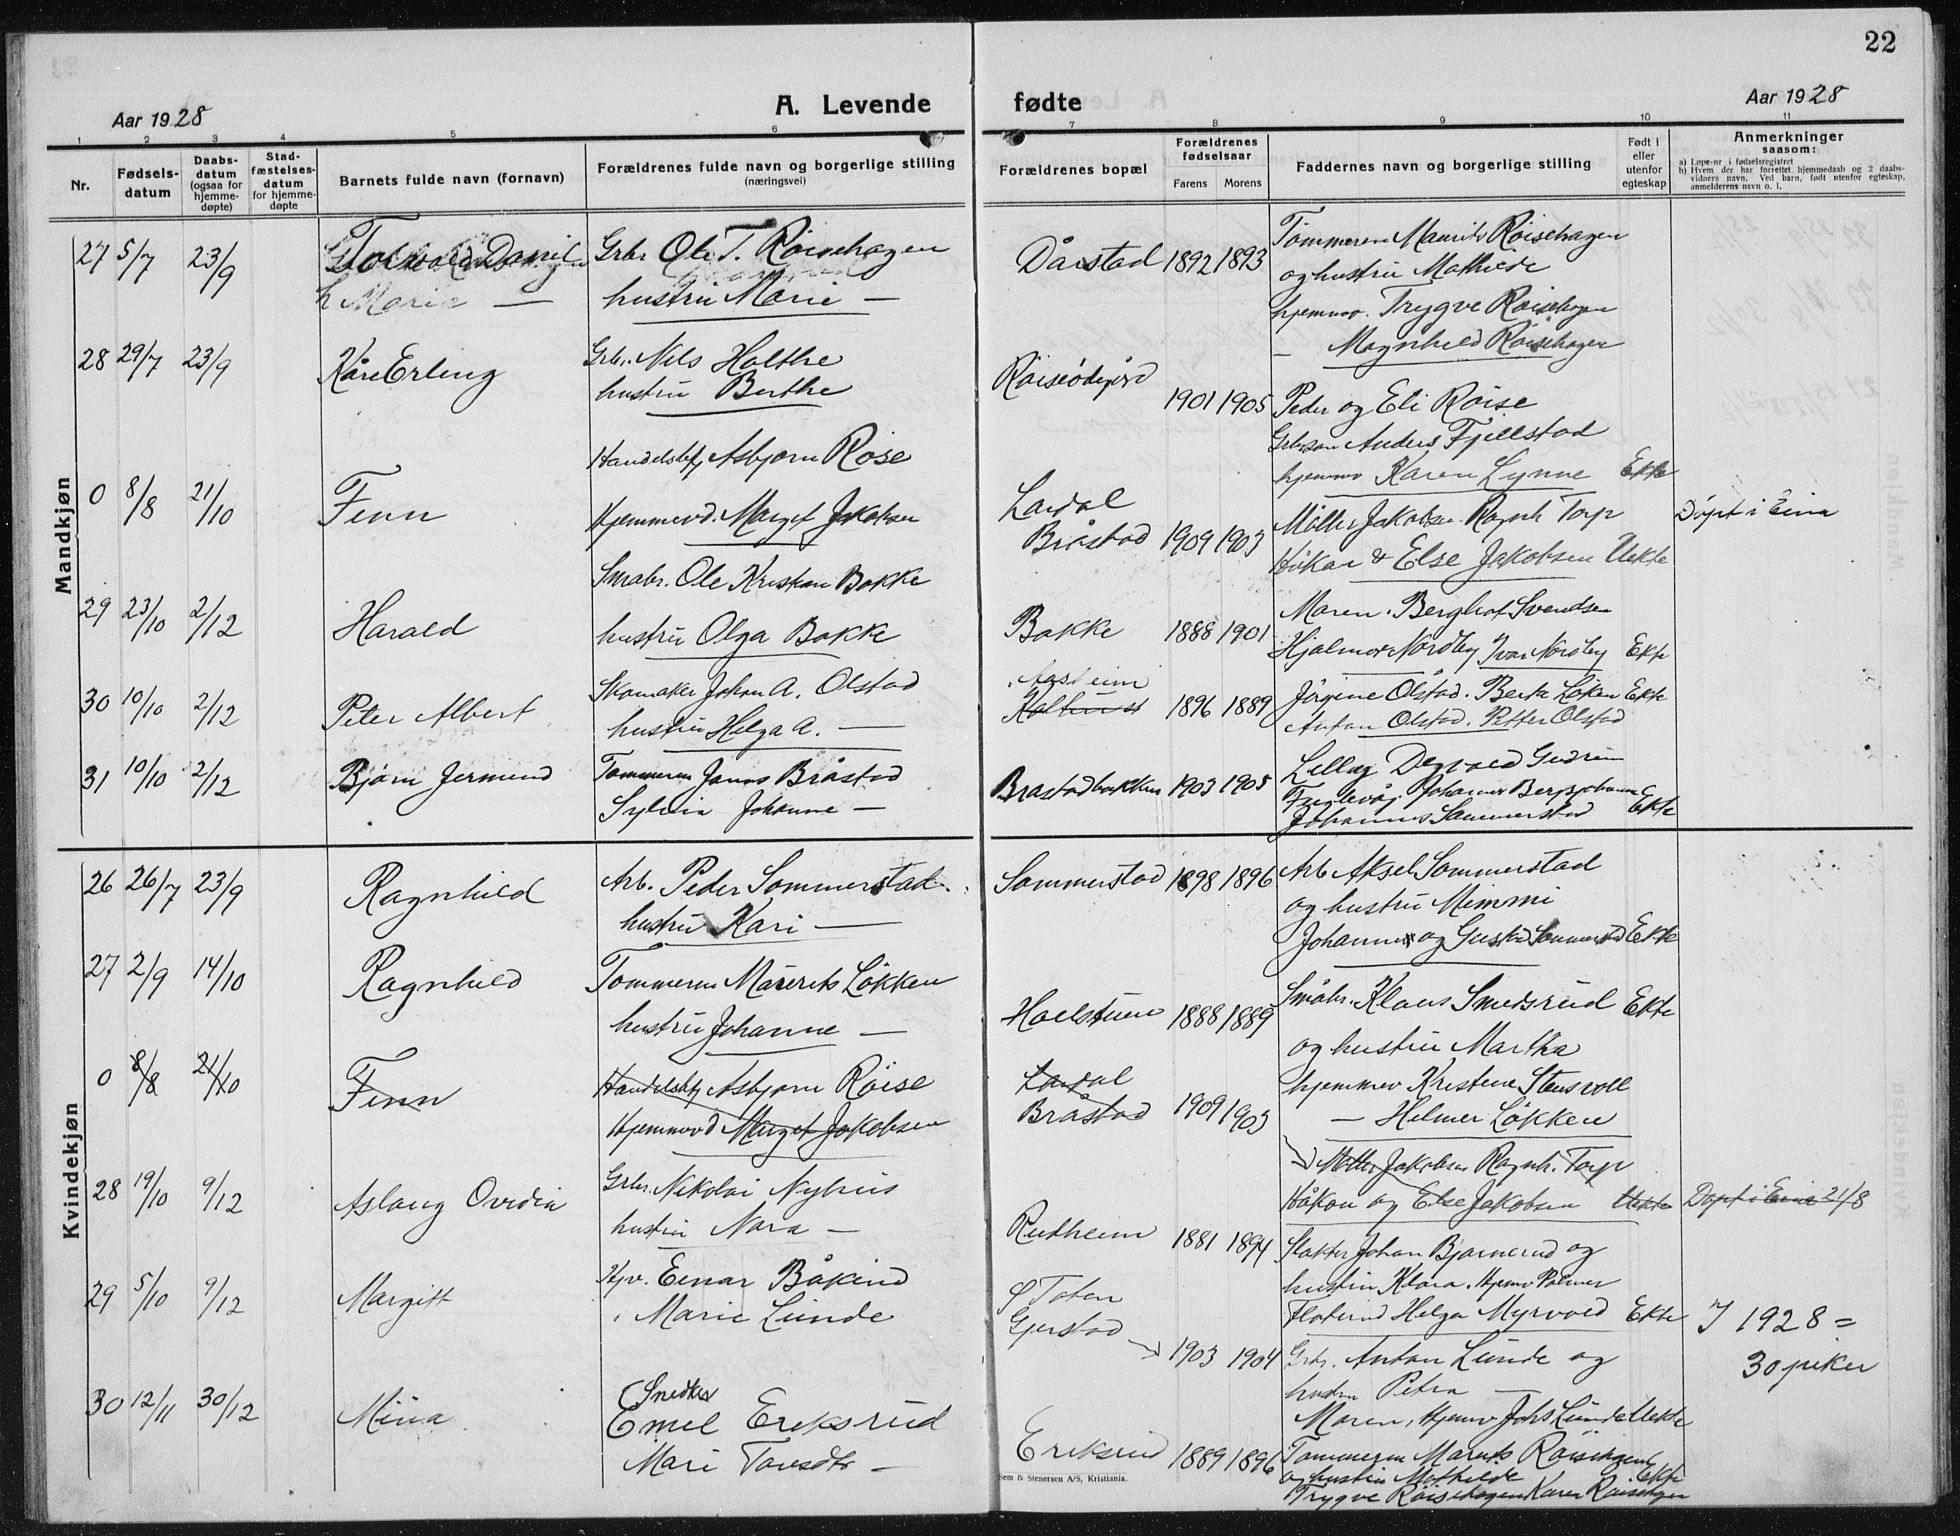 22
Aar 1928
A. Levende
fødte
Aar 1928
1 2 3 4 5 6 7 8 9 10 11
Nr.
Fødsels-
datum
Daabs-
datum
(ogsaa for
hjemme-
døpte)
Stad-
fæstelses-
datum
for hjemme-
døpte
Barnets fulde navn (fornavn)
Forældrenes fulde navn og borgerlige stilling
(næringsvei)
Forældrenes bopæl
Forældrenes
fødselsaar
Farens Morens
Faddernes navn og borgerlige stilling
Født i
eller
utenfor
egteskap
Anmerkninger
saasom:
a) Løpe-nr i fødselsregistret
b) Hvem der har forrettet hjemmedaab og 2 daabs-
vidners navn. Ved barn, født utenfor egteskap,
anmelderens navn o. l.
Mandkjøn
27 5/7 23/9 Torvald Daniel
h Marie —
Grbr Ole T. Røisehagen
hustru Marie —
Dårstad 1892 1893
Tømmeren Maurits Røisehagen
og hustru Mathilde
hjemmev. Trygve Røisehagen
— Magnhild Røisehagen
28 29/7 23/9 Kåre Erling
Grbr. Nils Holthe
hustru Berthe
Røiseødegård 1901 1905
Peder og Eli Røise
Grbrsøn Anders Fjellstad
hjemmev Karen Lynne Ekte
0 8/8 21/10 Finn
Handelsbtj Asbjørn Røise
Hjemmevd. Margit Jakobsen
Lardal
Bråstad 1909 1903
Møller Jakobsen. Ragnh Torp
Håkon & Else Jakobsen Uekte
Døpt i Eina
29 23/10 2/12 Harald
Småbr. Ole Kristian Bakke
hustru Olga Bakke
Bakke 1888 1901
Maren. Berghot Svendsen
Hjalmar Nordby Ivar Nordby Ekte
30 10/10 2/12 Peter Albert
Skomaker Johan A. Olstad
hustru Helga A. —
Aasheim
1896 1889
Jørgine Olstad. Berte Løken Ekte
Anton Olstad. Petter Olstad
31 10/10 2/12 Bjørn Jermund
Tømmerm Jonas Bråstad
Sylvia Johanne —
Bråstadbakken 1903 1905
Johannes Sommerstad Ekte
Kvindekjøn
26 26/7 23/9 Ragnhild
Arb. Peder Sommerstad
hustru Kari —
Sommerstad 1898 1896
Arb Aksel Sommerstad
og hustru Mimmi
Johannes og Gustav Sommerstad Ekte
27 2/9 14/10 Ragnhild
Tømmerm Maurits Løkken
hustru Johanne —
Hoelstuen 1888 1889
Småbr. Klaus Smedsrud Ekte
og hustru Martha
hjemmev Kristine Stensvoll
— Helmer Løkken
0 8/8 21/10 Finn
Handelsbtj Asbjørn Røise
Hjemmevd Margit Jakobsen
Lardal
Bråstad 1909 1903
Møller Jakobsen Ragnh. Torp
Håkon og Else Jakobsen Uekte
Døpt i Eina 21/8
28 19/10 9/12 Aslaug Ovidia
Grbr. Nikolai Nyhus
hustru Nora —
Rudheim 1881 1894
Slakter Johan Bjørnerud og
hustru Klara. Hjemv Palmer
Floterud Helga Myrvold Ekte
29 5/10 9/12 Margitt
Hjv. Einar Båkind
Marie Lunde
Ø Toten
Gjerstad 1903 1904
Grbr. Anton Lunde og
hustru Petra —
Maren, Hjemv Johs Lunde Uekte
I 1928 =
30 piker
30 12/11 30/12 Mina
Snedker
Emil Eriksrud
Mari Torsdtr —
Eriksrud 1889 1896
Tømmerm Marits Røisehagen
og hustru Mathilde Ekte
Trygve Røisehagen Karen Røisehagen
Sem & Stenersen A/S, Kristiania.